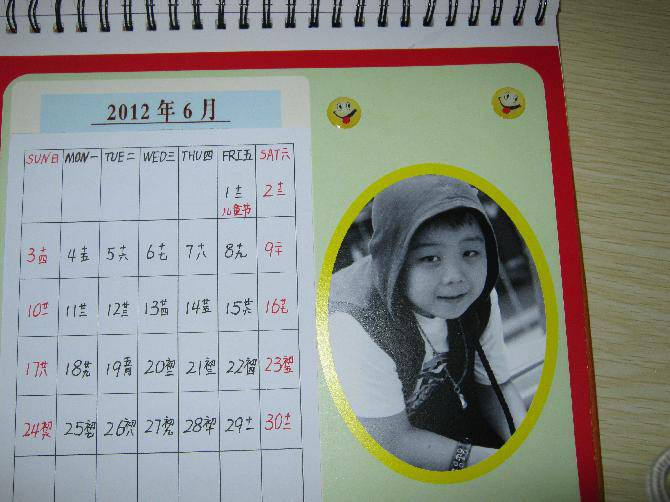 2012年6月
SUN日 MON一 TUE二 WED三 THU四 FRI五 SAT六
1十二 2十三
儿童节
3十四 4十五 5十六 6十七 7十八 8十九 9二十
10廿一 11廿二 12廿三 13廿四 14廿五 15廿六 16廿七
17廿八 18廿九 19 20初二 21初三 22初四 23初五
24初六 25初七 26初八 27初九 28初十 29十一 30十二